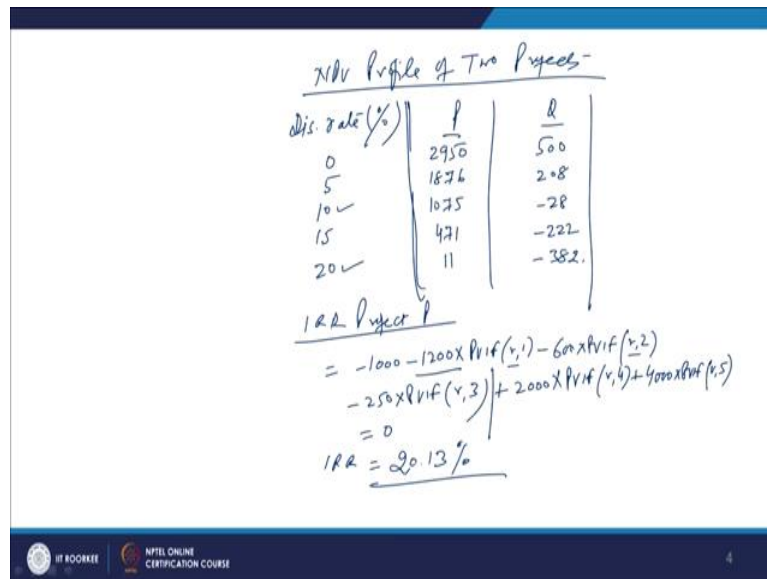 NPV Profile of Two Projects-
Dis. rate (%) P Q
0 2950 500
5 1876 208
10 ✓ 1075 -28
15 471 -222
20 ✓ 11 -382.
IRR Project P
= -1000 - 1200 x PVIF (r,1) - 600 x PVIF (r,2)
- 250 x PVIF (r,3) + 2000 x PVIF (r,4) + 4000 x PVIF (r,5)
= 0
IRR = 20.13 %
IIT ROORKEE NPTEL ONLINE
CERTIFICATION COURSE
4